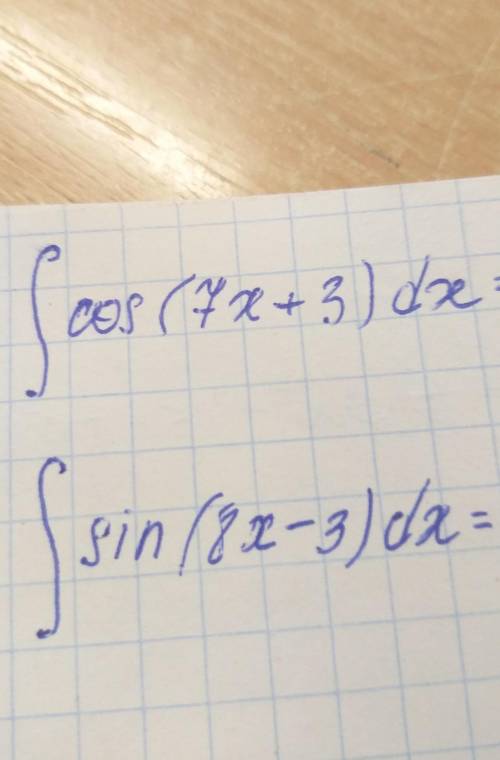 ∫ cos(7x+3)dx=
∫ sin(8x-3)dx=